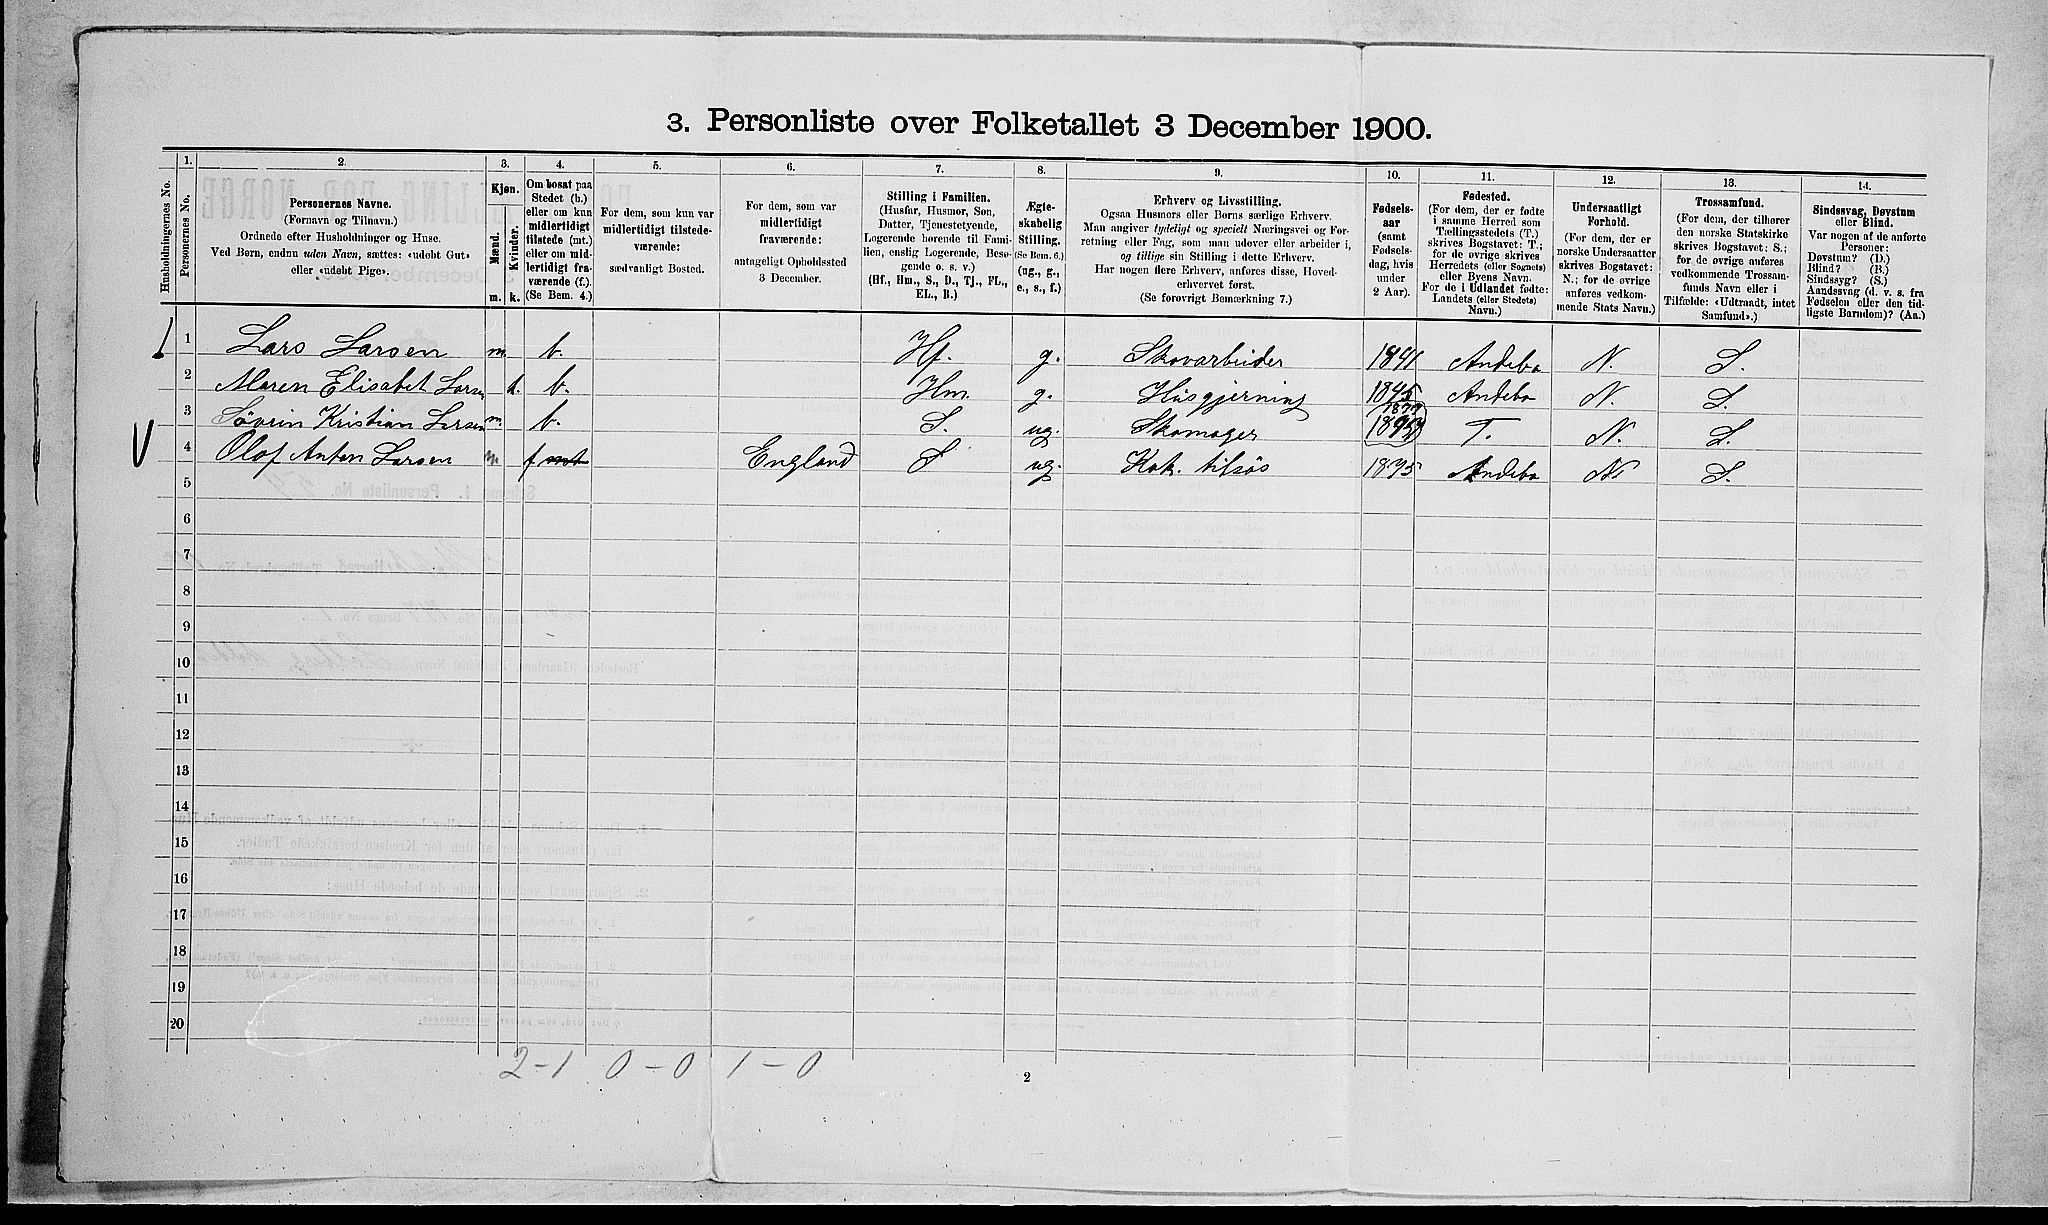 3. Personliste over Folketallet 3 December 1900.
1. 2. 3. 4. 5. 6. 7. 8. 9. 10. 11. 12. 13. 14.
Husholdningernes No.
Personernes No.
Personernes Navne.
(Fornavn og Tilnavn.)
Ordnede efter Husholdninger og Huse.
Ved Børn, endnu uden Navn, sættes: «udøbt Gut»
eller «udøbt Pige».
Kjøn.
Mænd.
Kvinder.
m. k.
Om bosat paa
Stedet (b.)
eller om kun
midlertidigt
tilstede (mt.)
eller om mid-
lertidigt fra-
værende (f.)
(Se Bem. 4.)
For dem, som kun var
midlertidigt tilstede-
værende:
sædvanligt Bosted.
For dem, som var
midlertidigt
fraværende:
antageligt Opholdssted
3 December.
Stilling i Familien.
(Husfar, Husmor, Søn,
Datter, Tjenestetyende,
Logerende hørende til Fami-
lien, enslig Logerende, Besø-
gende o. s. v.)
(Hf., Hm., S., D., Tj., FL.,
EL., B.)
Ægte-
skabelig
Stilling.
(Se Bem. 6.)
(ug., g.,
e., s., f.)
Erhverv og Livsstilling.
Ogsaa Husmors eller Børns særlige Erhverv.
Man angiver tydeligt og specielt Næringsvei og For-
retning eller Fag, som man udøver eller arbeider i,
og tillige sin Stilling i dette Erhverv.
Har nogen flere Erhverv, anføres disse, Hoved-
erhvervet først.
(Se forøvrigt Bemærkning 7.)
Fødsels-
aar
(samt
Fødsels-
dag, hvis
under
2 Aar).
Fødested.
(For dem, der er fødte
i samme Herred som
Tællingsstedets (T.)
skrives Bogstavet: T.;
for de øvrige skrives
Herredets (eller Sognets)
eller Byens Navn.
For de i Udlandet fødte:
Landets (eller Stedets)
Navn.)
Undersaatligt
Forhold.
(For dem, der er
norske Undersaatter
skrives Bogstavet:
N.; for de øvrige
anføres vedkom-
mende Stats Navn.)
Trossamfund.
(For dem, der tilhører
den norske Statskirke
skrives Bogstavet: S.;
for de øvrige anføres
vedkommende Trossam-
funds Navn eller i
Tilfælde: «Udtraadt, intet
Samfund».)
Sindssvag, Døvstum
eller Blind.
Var nogen af de anførte
Personer:
Døvstum? (D.)
Blind? (B.)
Sindssyg? (S.)
Aandssvag (d. v. s. fra
Fødselen eller den tid-
ligste Barndom)? (Aa.)
1 Lars Larsen m. b. Hf. g. Skovarbeider 1841 Andebo N. S.
2 Maren Elisabet Larsen k. b. Hm. g. Husgjerning 1845 Andebo N. S.
1877
3 Søvrin Kristian Larsen m. b. S. ug. Skomager T. N. S.
4 Olof Anton Larsen m f mt England S ug. Kok. tilsøs 1875 Andebo N. S.
5
6
7
8
9
10
11
12
13
14
15
16
17
18
19
20
2-1 0-0 1-0
2